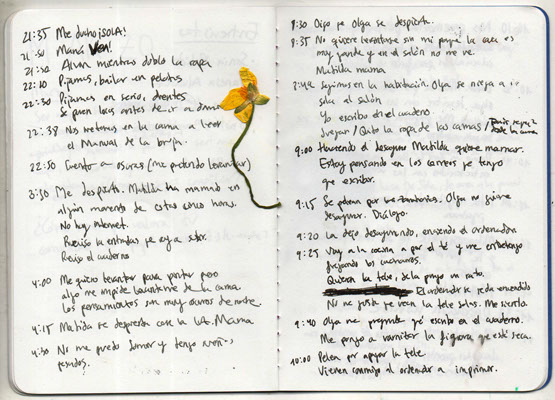 21:35 Me ducho ¡SOLA!
21:50 Mamá Ven!
21:52 Alvan mientras doblo la ropa
22:10 Pijamas, bailar en pelotas
22:30 Pijamas en serio, dientes
Se ponen locas antes de ir a dormir
22:38 Nos metemos en la cama a leer
el Manual de la bruja.
22:50 Cuento a oscuras (me pretendo levantar)
3:30 Me despierto. Matilda ha mamado en
algún momento de estas cinco horas.
No hay internet.
Reviso las entradas
Reviso el cuaderno
4:00 Me quiero levantar para pero
algo me impide levantarme de la cama
los pensamientos son muy oscuros de noche.
4:15 Matilda se despierta con la Mama
4:30 No me puedo dormir y tengo sueños
pesados.
8:30 Oigo ya Olga se despierta.
8:35 No quiere levantarse sin mi porque la casa es
muy grande y en el salón no me ve.
Matilda mama
8:42 Seguimos en la habitación. Olga se niega a ir
sola al salón
Yo escribo en el cuaderno
Juegan / Quito la ropa de las camas /
la cama
9:00 Haciendo el desayuno Matilda quiere mamar.
Estoy pensando en los correos que tengo
que escribir.
9:15 Se pelean por las zanahorias. Olga no quiere
desayunar. Diálogo.
9:20 La dejo desayunando, enciendo el ordenador
9:25 Voy a la cocina a por el té y me entretengo
fregando los cacharros.
Quieren la tele, se la pongo un rato.
El ordenador se queda encendido
No me gusta que vean la tele solas. Me siento.
9:40 Olga me pregunta qué escribo en el cuaderno.
Me pongo a barnizar la figura que está seca.
10:00 Pelea por apagar la tele
Vienen conmigo al ordenador a imprimir.